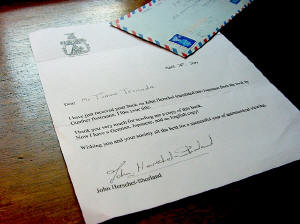 April 28th, 2004
Dear Mr
I have just received your book on John Herschel translated into Japanese from the work by
Gunther Buttmann. I like your title.
Thank you very much for sending me a copy of this book.
Now I have a German, Japanese, and an English copy!
Wishing you and your society all the best for a successful year of astronomical viewing.
John Herschel-Shorland
John Herschel-Shorland